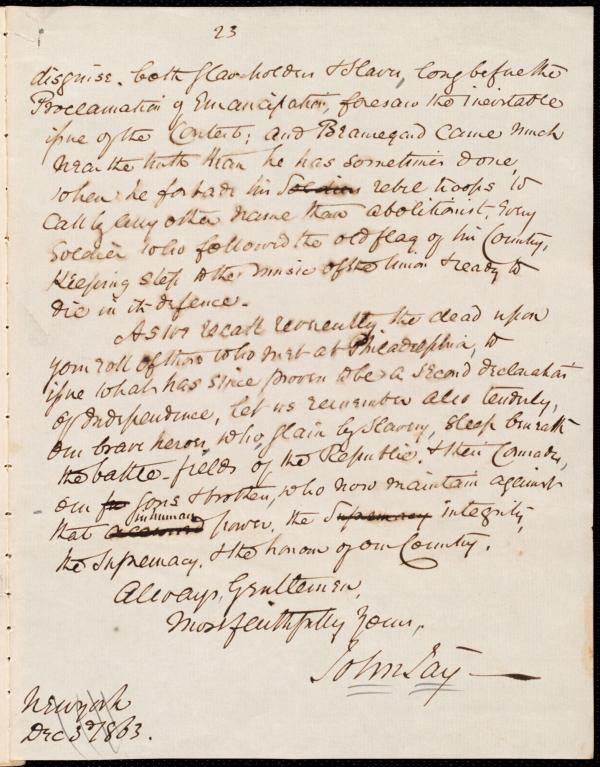 23
disguise. both Slaveholders & Slaves, long before the
Proclamation of Emancipation, foresaw the inevitable
issue of the Contest; and Beauregard came much
near the truth than he has sometimes done,
when he forbade his Soldiers rebel troops to
call by any other name than abolitionist, every
Soldier who followed the old flag of his Country,
Keeping step to the music of the Union & ready to
die in its defence.
As we recall reverently the dead upon
your roll of those who met at Philadelphia, to
issue what has since proven to be a second declaration
of Independence, let us remember also tenderly,
our brave heroes, who slain by Slavery, sleep beneath
the battle-fields of the Republic. & their Comrades,
our sons & brothers, who now maintain against
inhuman
that accursed power, the Supremacy integrity,
the Supremacy, & the honour of our Country.
Always, Gentlemen,
Most faithfully Yours,
John Jay
New York
Dec 3d 1863.